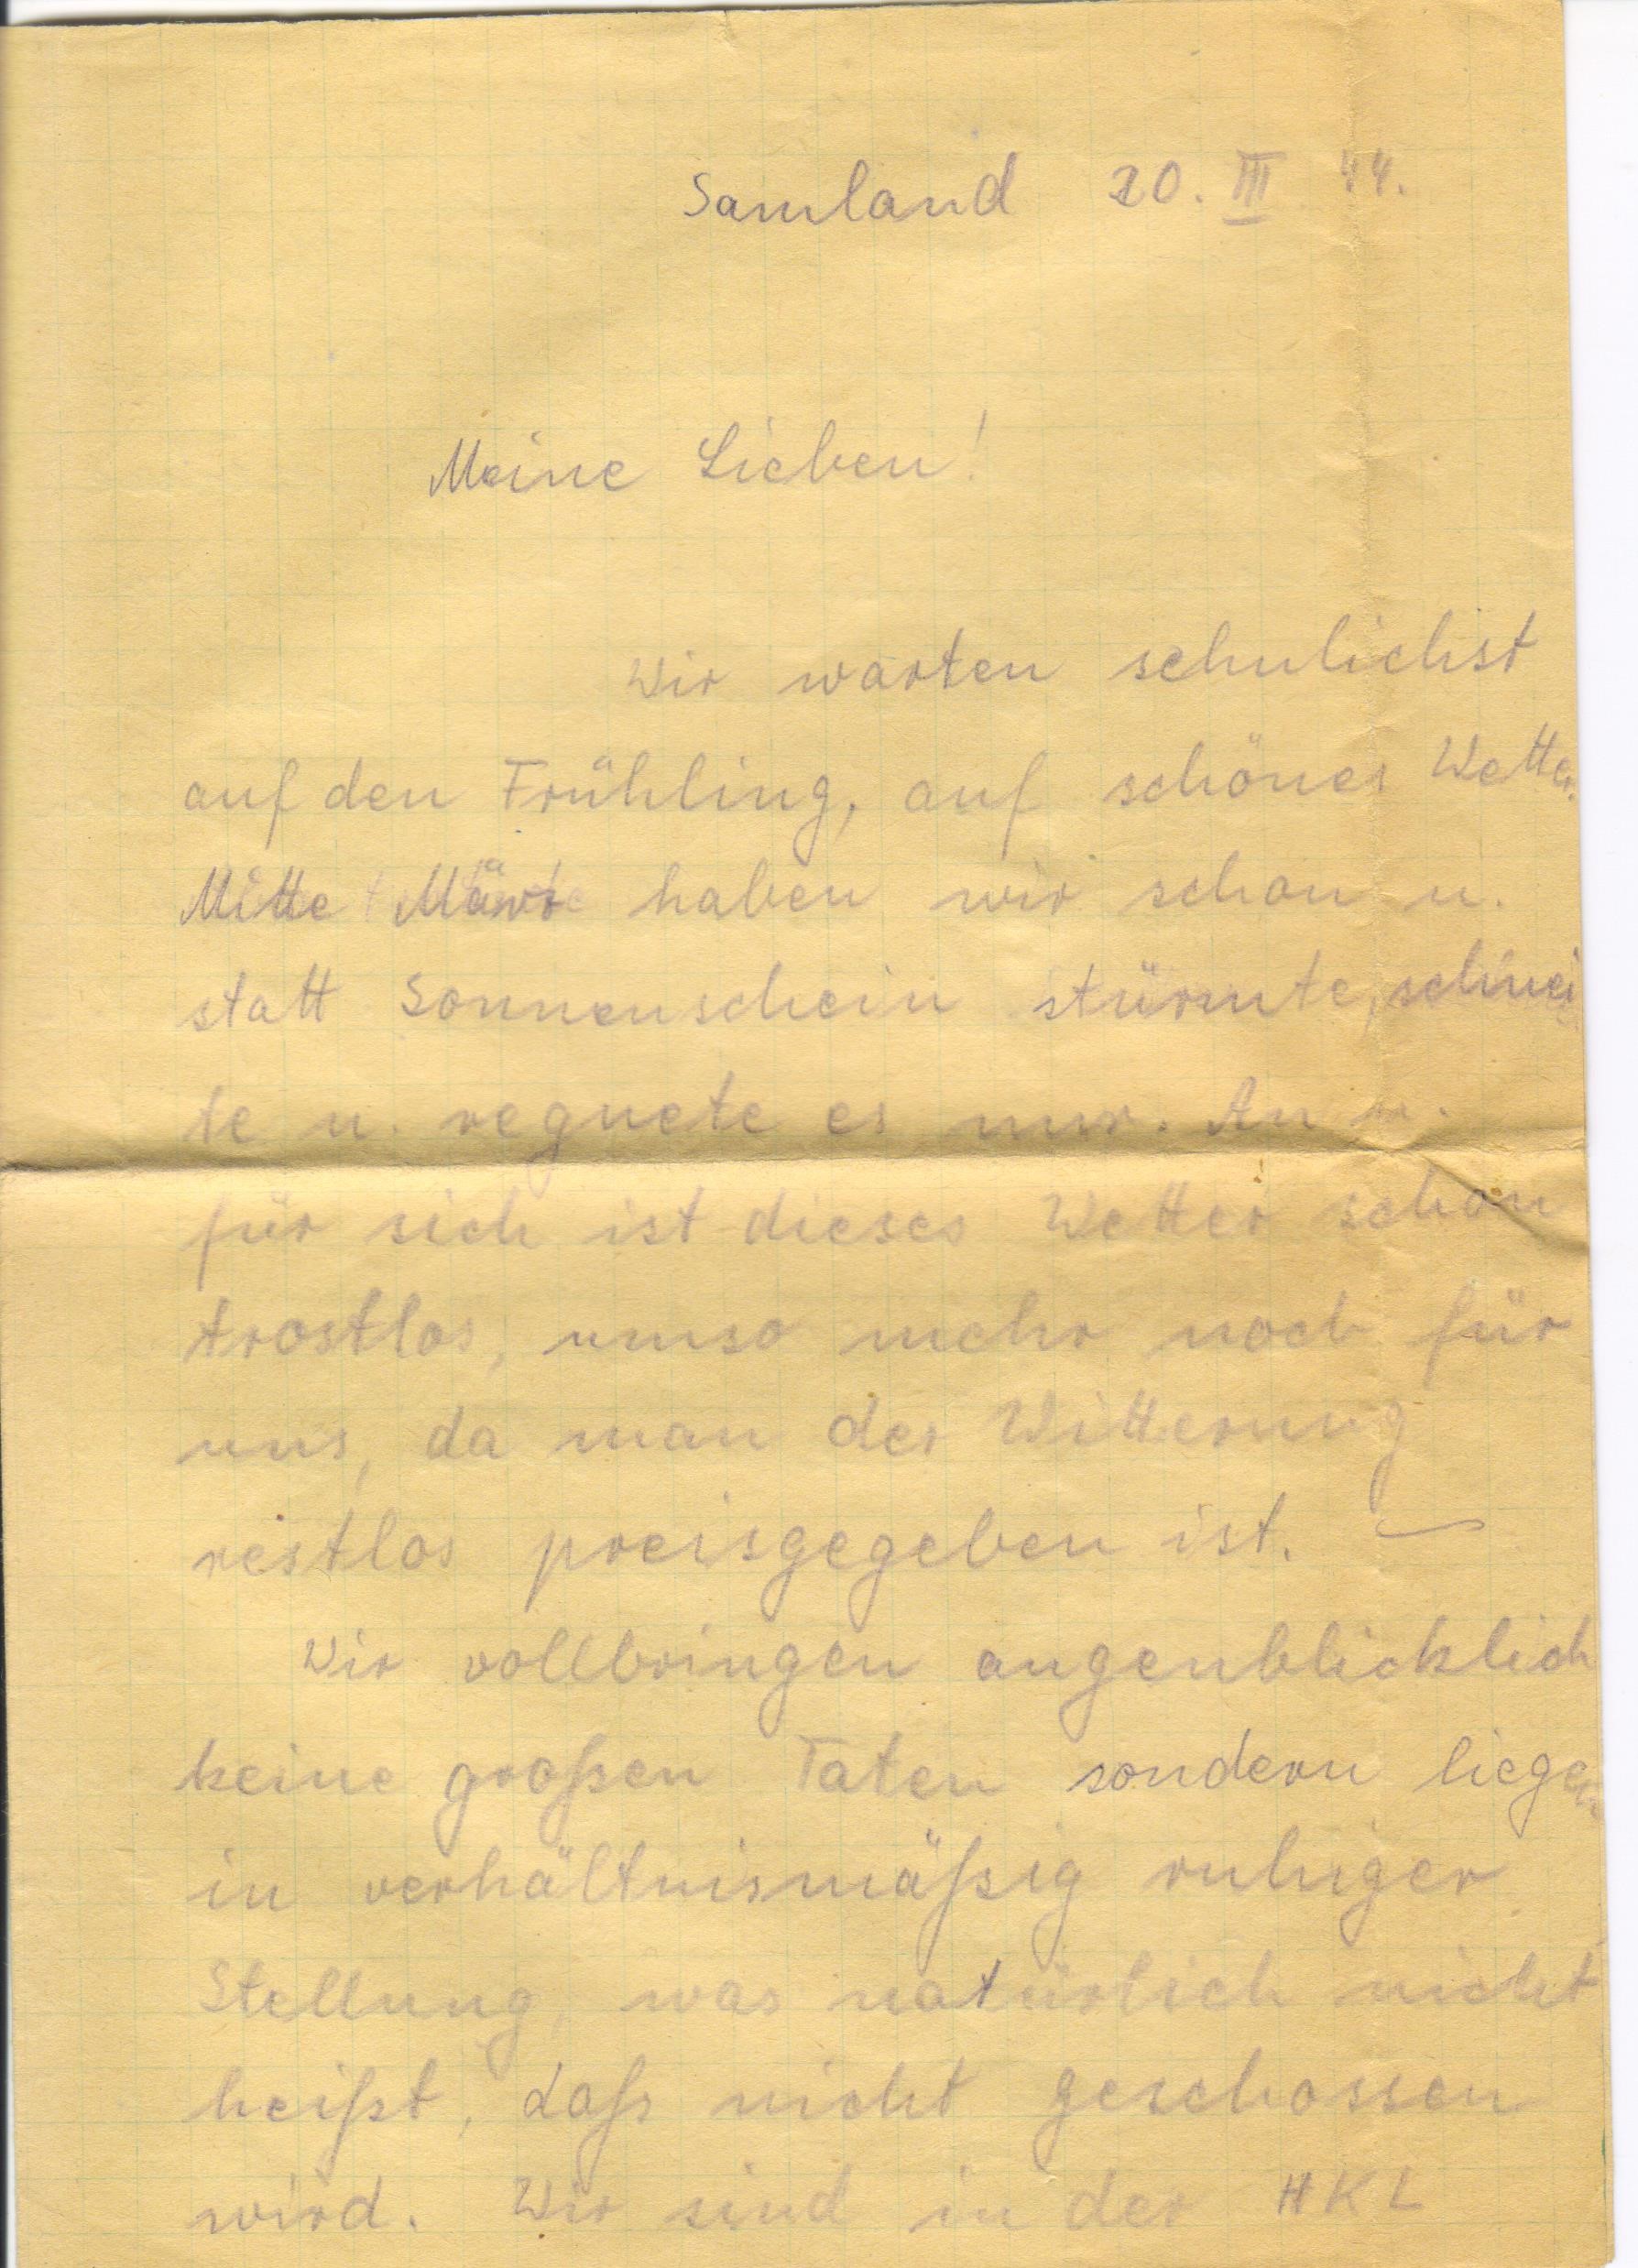 Samland 20. III 44.
Meine Lieben!
Wir warten sehnlichst
auf den Frühling, auf schönes Wetter.
Mitte März haben wir schon u.
statt Sonnenschein stürmte, schnei
te u. regnete es nur. An u.
für sich ist dieses Wetter schon
trostlos, umso mehr noch für
uns, da man der Witterung
restlos preisgegeben ist. —
Wir vollbringen augenblicklich
keine großen Taten sondern liegen
in verhältnismäßig ruhiger
Stellung, was natürlich nicht
heißt, daß nicht geschossen
wird. Wir sind in der HKL